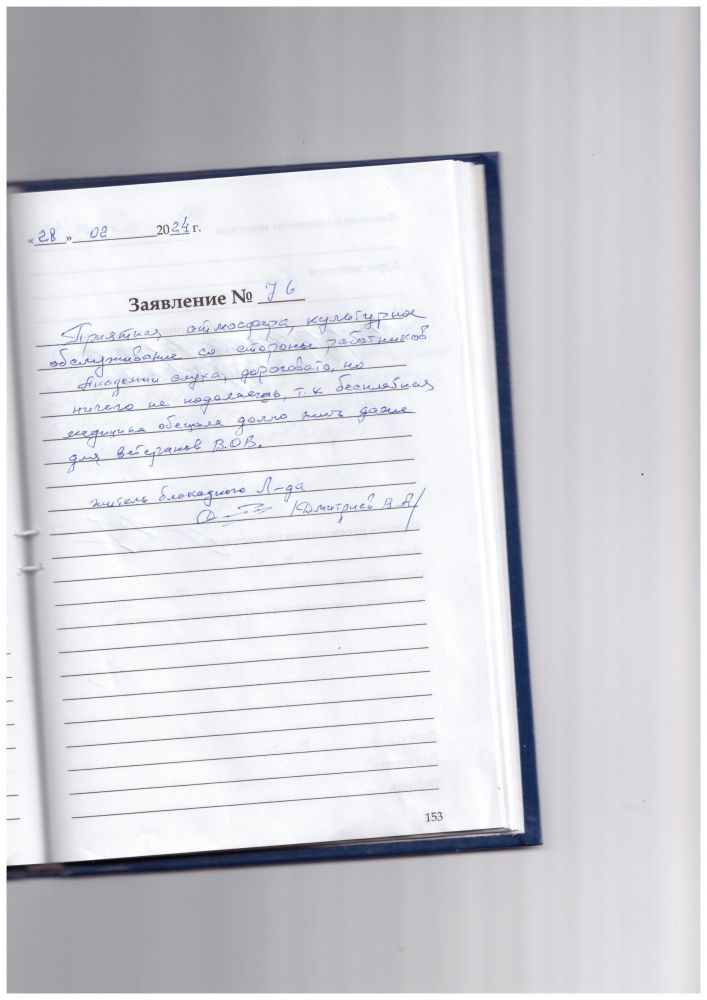 «28» 02 2024 г.
Заявление № 76
Приятная атмосфера, культурное
обслуживание со стороны работников
Академии слуха, дороговато, но
ничего не поделаешь, т.к бесплатная
медицина обещала долго жить даже
для ветеранов В.О.В.
житель блокадного Л-да
/Дмитриев В.А/
153